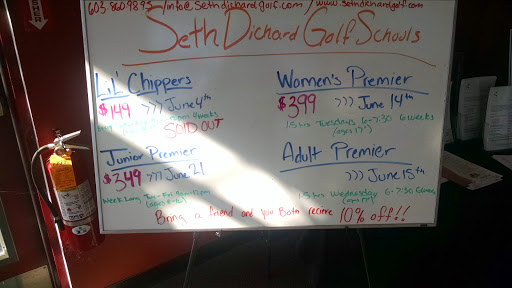 603-860-9893 - info@sethdichardgolf.com / www.sethdichardgolf.com
Seth Dichard Golf Schools
Lil' Chippers
$149 >>> June 4th
SOLD OUT
Junior Premier
$349 >>> June 21
Week Long Tue - Fri
Women's Premier
$399 >>> June 14th
1.5 hrs Tuesdays 6-7:30 6 weeks
(ages 17+)
Adult Premier
>>> June 15th
1.5 hrs Wednesday 6-7:30
Bring a friend and you Both receive 10% off!!